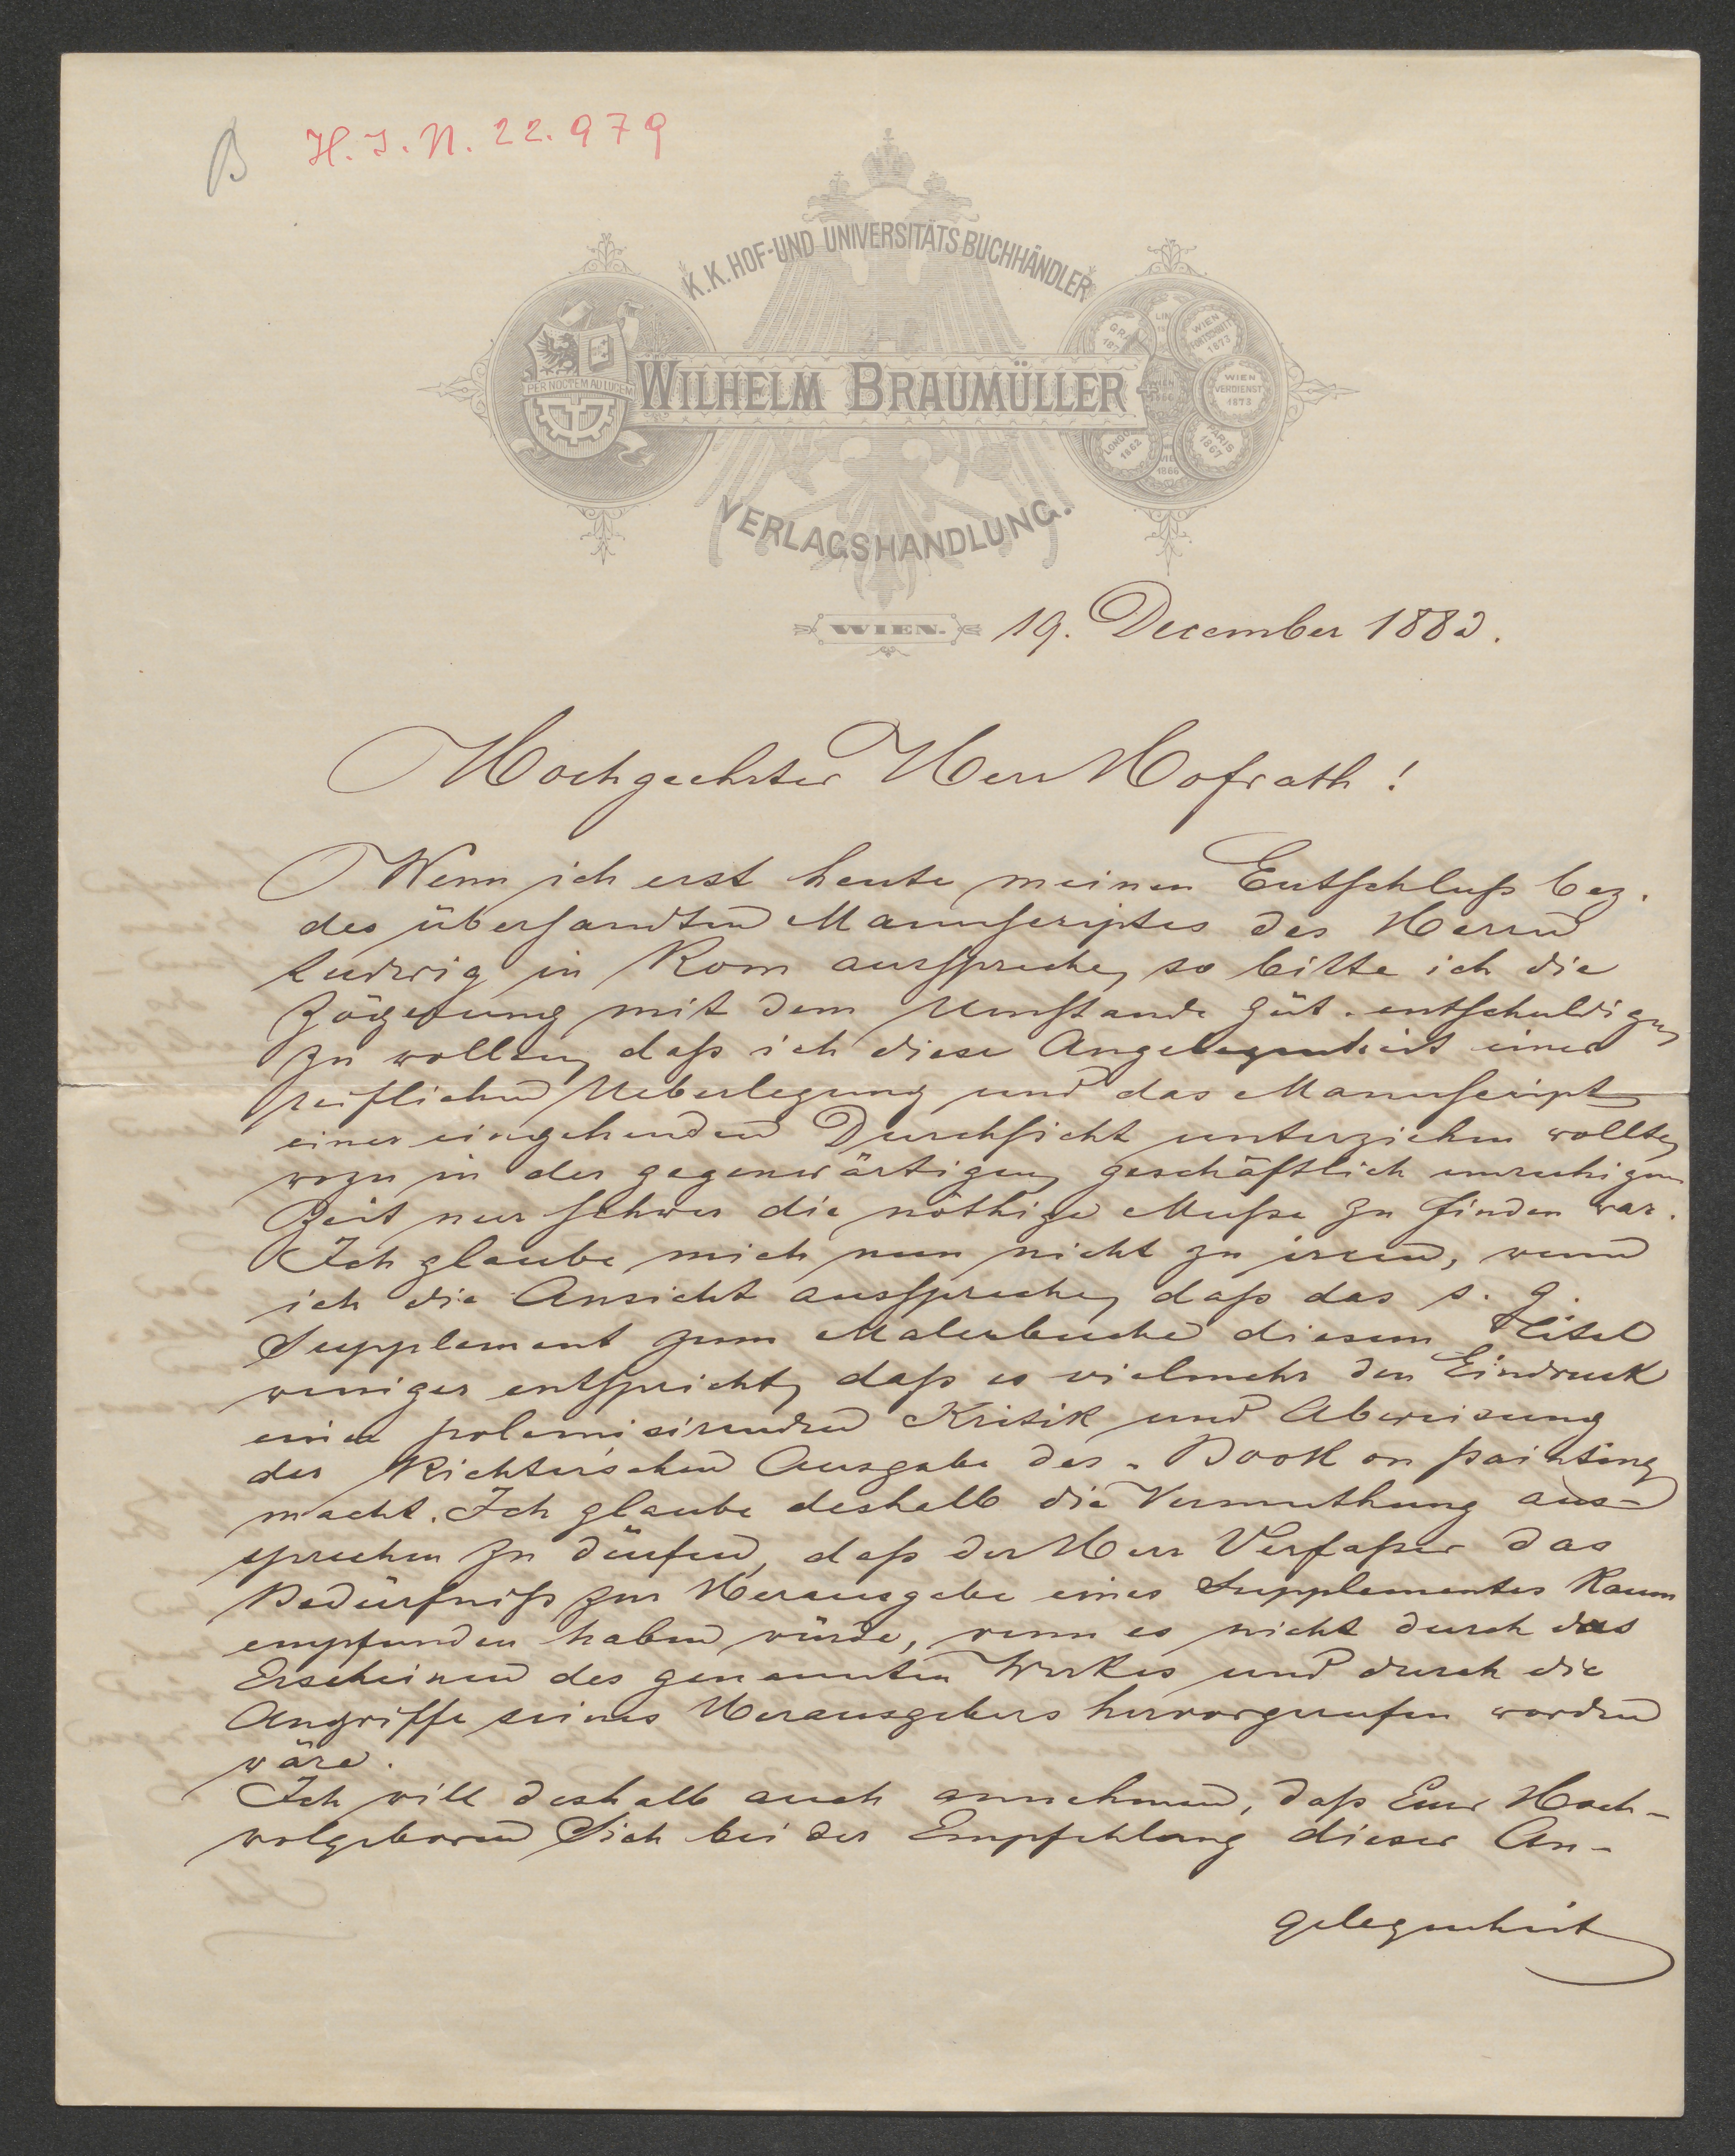 B H. I. N. 22.979
K. K. HOF-UND UNIVERSITÄTS BUCHHÄNDLER
PER NOCTEM AD LUCEM
WILHELM BRAUMÜLLER
WIEN FORTSCHRITT 1873
WIEN VERDIENST 1873
PARIS 1867
LONDON 1862
1866
VERLAGSHANDLUNG.
WIEN. 19. December 1882.
Hochgeehrter Herr Hofrath!
Wenn ich erst heute meinen Entschluß bez.
des übersandten Manuscriptes des Herrn
Ludwig in Rom ausspreche, so bitte ich die
Zögerung mit dem Umstande güt. entschuldigen
zu wollen, daß ich diese Angelegenheit einer
reiflichen Ueberlegung und das Manuscript
einer eingehenden Durchsicht unterziehen wollte,
wozu in der gegenwärtigen, geschäftlich unruhigen
Zeit nur schwer die nöthige Muße zu finden war.
Ich glaube mich nun nicht zu irren, wenn
ich die Ansicht ausspreche, daß das s. g.
Supplement zum Malerbuche diesem Titel
weniger entspricht, daß es vielmehr den Eindruck
einer polemisirenden Kritik und Abweisung
der Richter'schen Ausgabe des „Book on painting
macht. Ich glaube deshalb die Vermuthung aus-
sprechen zu dürfen, daß der Herr Verfaßer das
Bedürfniß zur Herausgabe eines Supplementes kaum
empfunden haben würde, wenn es nicht durch das
Erscheinen des genannten Werkes und durch die
Angriffe seines Herausgebers hervorgerufen worden
wäre.
Ich will deshalb auch annehmen, daß Euer Hoch-
wolgeboren Sich bei der Empfehlung dieser An-
gelegenheit